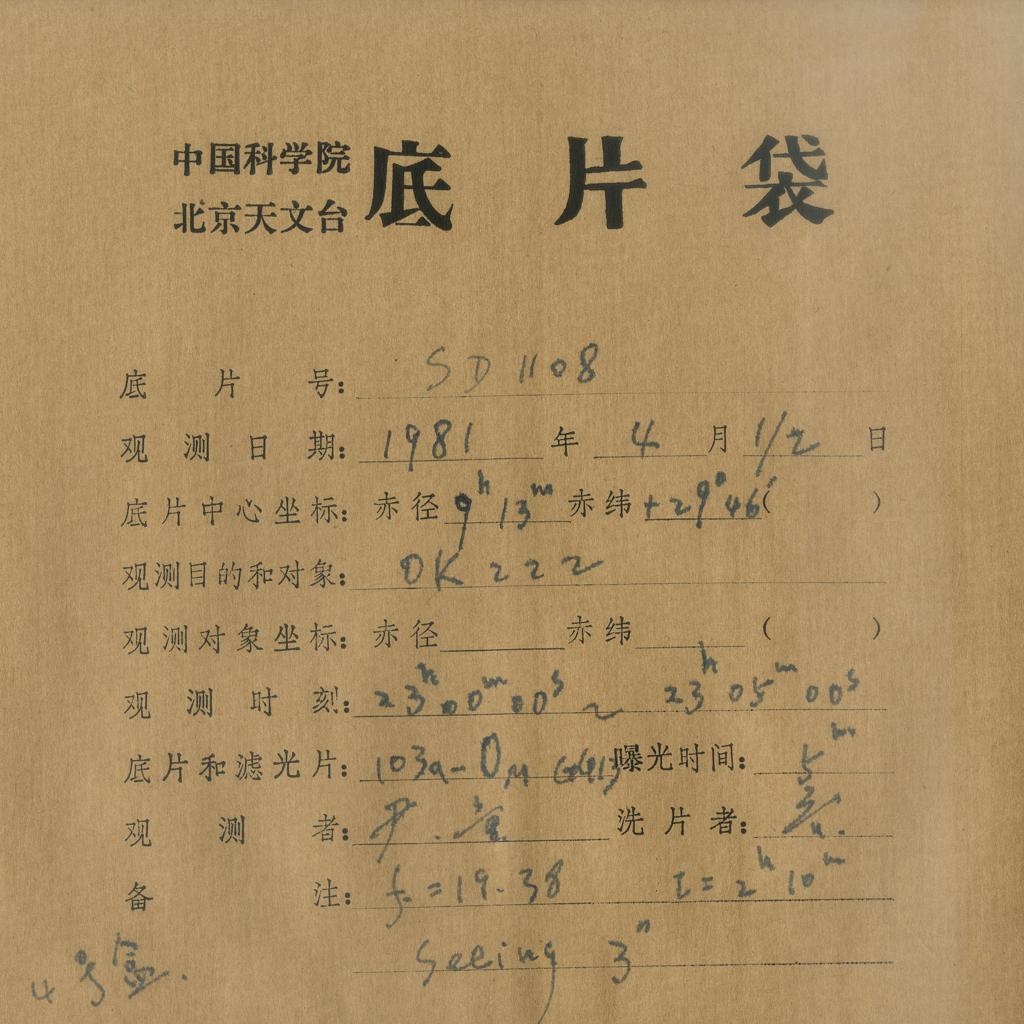 中国科学院
北京天文台
底片袋
底片号: SD 1108
观测日期: 1981 年 4 月 1/2 日
底片中心坐标: 赤径 9h 13m 赤纬 +29° 46′ ( )
观测目的和对象: OK 222
观测对象坐标: 赤径 赤纬 ( )
观测时刻: 23h 00m 00s ~ 23h 05m 00s
底片和滤光片: 103a-D 曝光时间: 5m
观测者: 尹. 洗片者:
备注: f=19.38 t=2h 10m
Seeing 3″
4号盒.